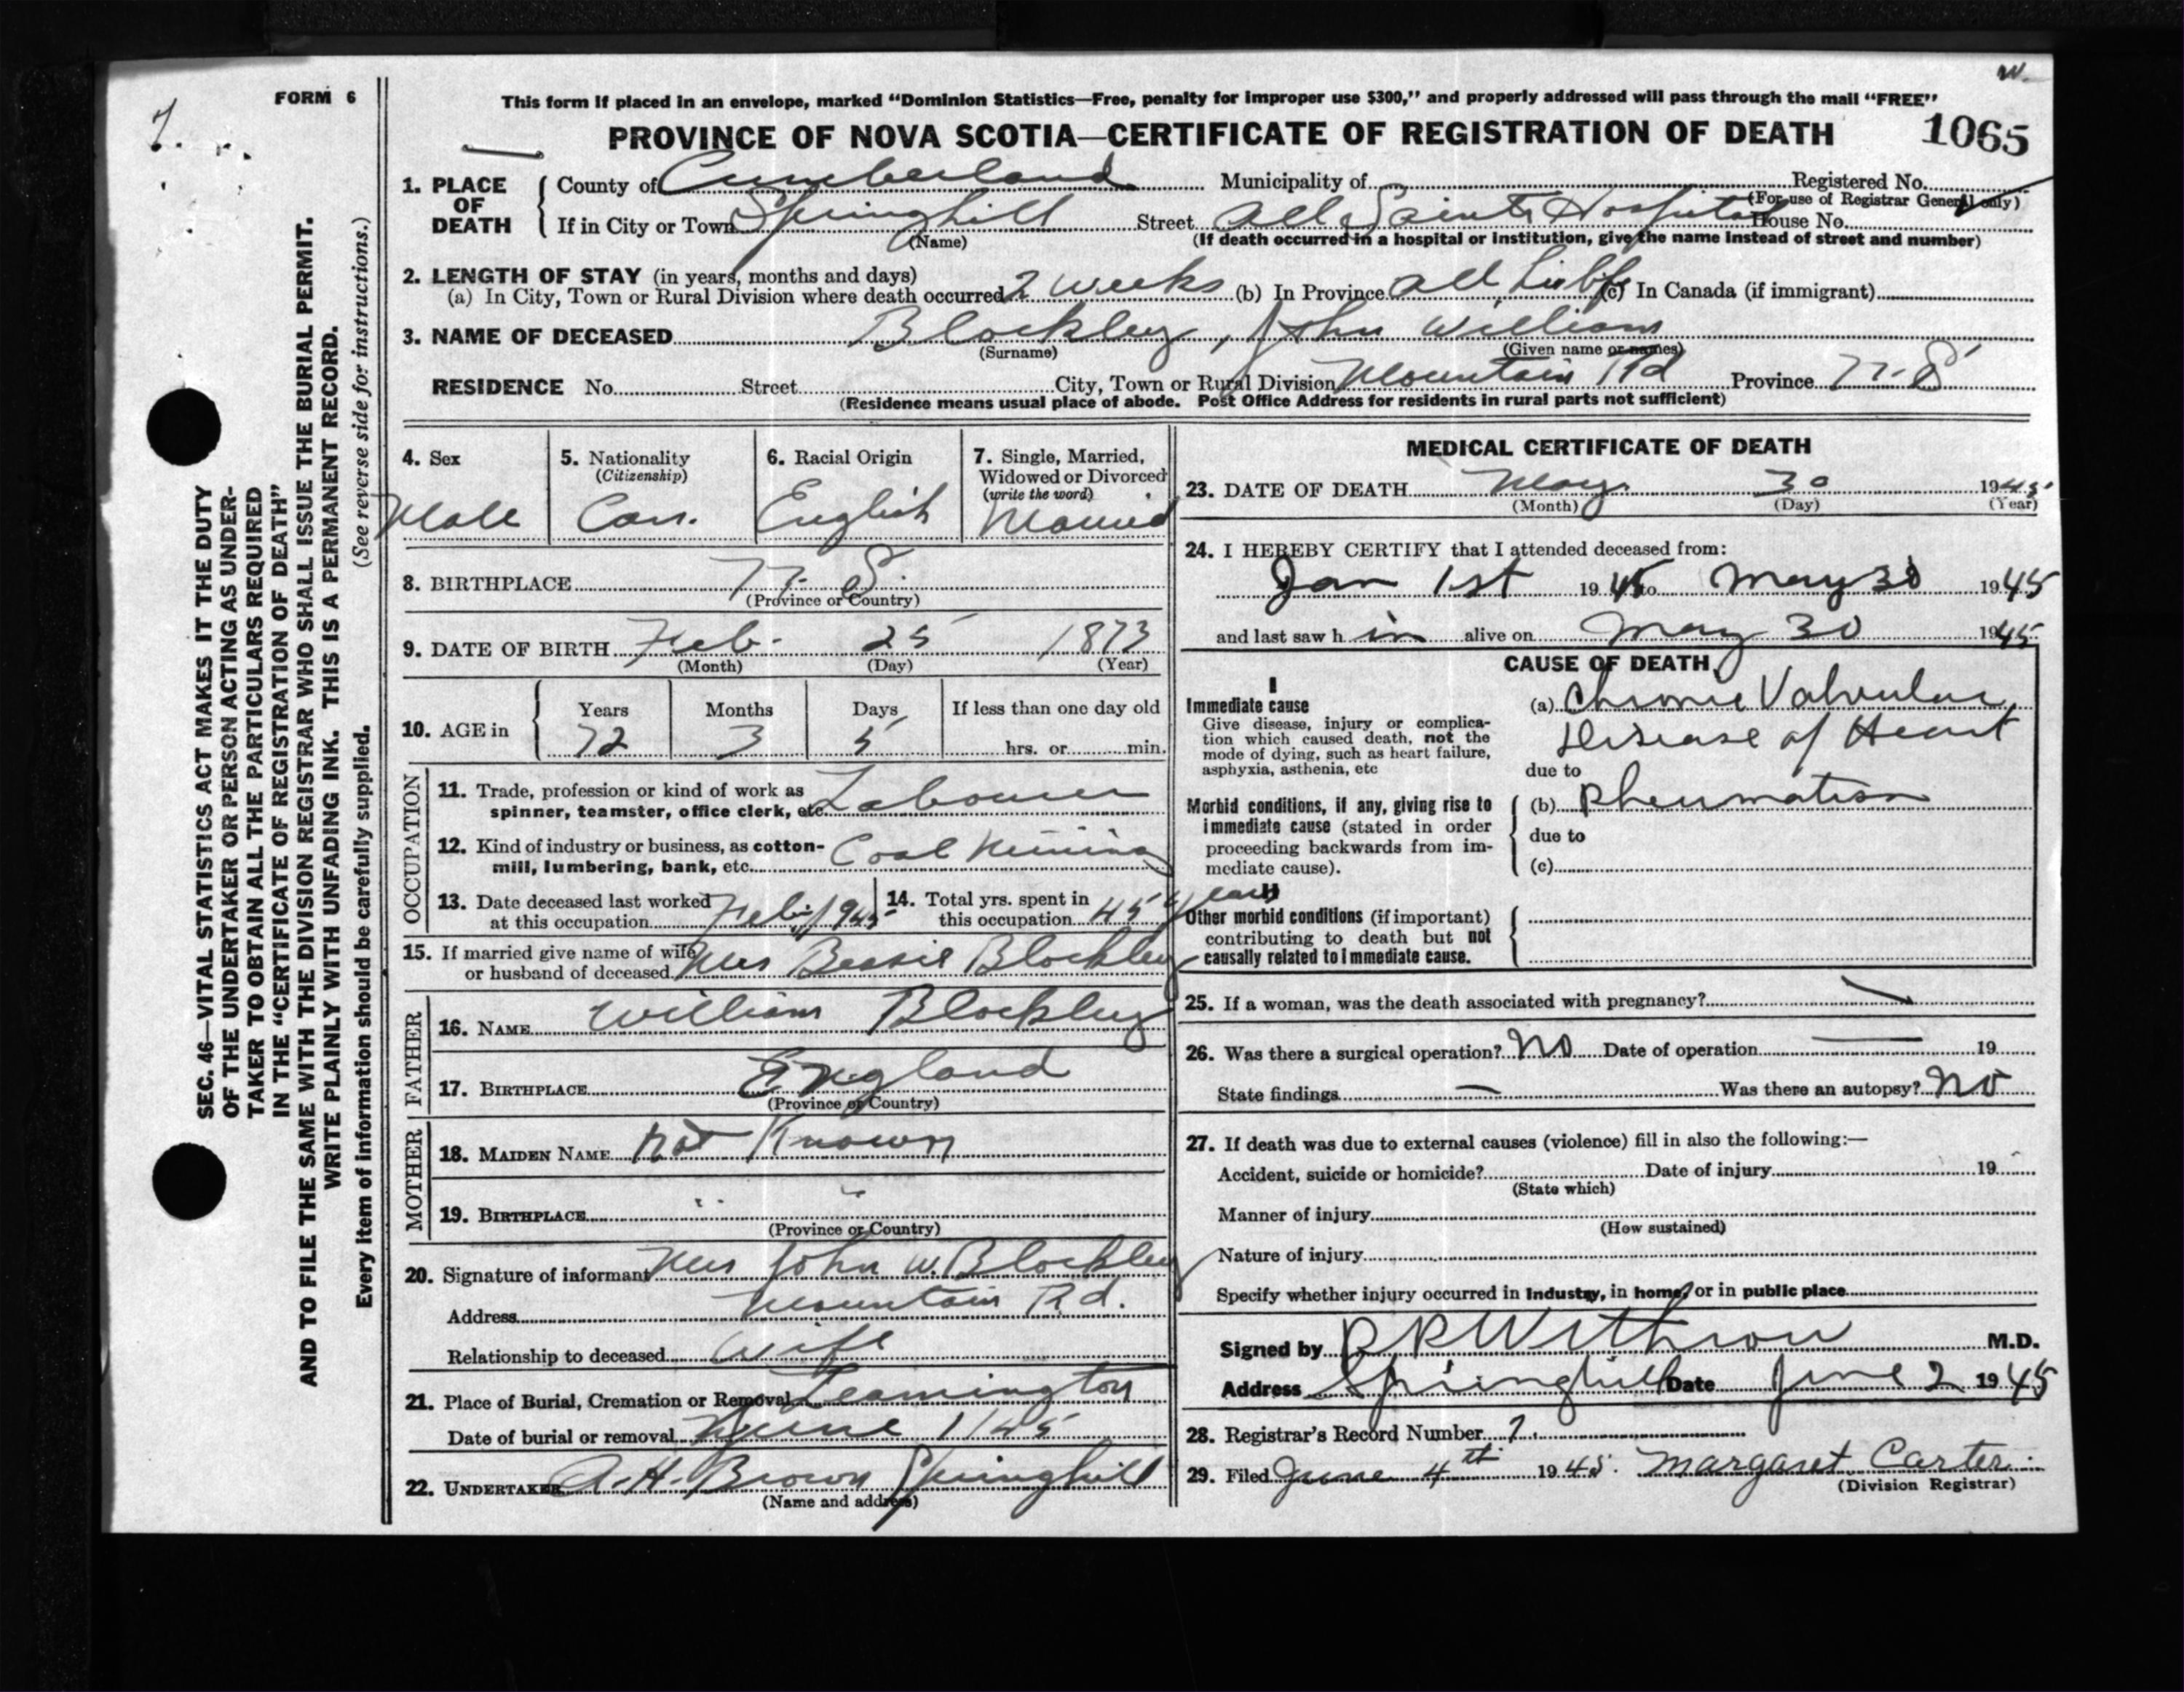 W.
FORM 6
7.
This form if placed in an envelope, marked "Dominion Statistics—Free, penalty for improper use $300," and properly addressed will pass through the mail "FREE"
PROVINCE OF NOVA SCOTIA—CERTIFICATE OF REGISTRATION OF DEATH 1065
1. PLACE OF DEATH
County of Cumberland Municipality of Registered No.
(For use of Registrar General only)
If in City or Town Springhill Street All Saints Hospital House No.
(Name) (If death occurred in a hospital or institution, give the name instead of street and number)
2. LENGTH OF STAY (in years, months and days)
(a) In City, Town or Rural Division where death occurred 2 weeks (b) In Province all (c) In Canada (if immigrant)
3. NAME OF DECEASED Blockley, John William
(Surname) (Given name or names)
RESIDENCE No. Street City, Town or Rural Division Mountain Rd Province N.S.
(Residence means usual place of abode. Post Office Address for residents in rural parts not sufficient)
4. Sex
Male
5. Nationality
(Citizenship)
Can.
6. Racial Origin
English
7. Single, Married,
Widowed or Divorced
(write the word)
Married
8. BIRTHPLACE N. S.
(Province or Country)
9. DATE OF BIRTH Feb. 25 1873
(Month) (Day) (Year)
10. AGE in
Years Months Days If less than one day old
72 3 5 hrs. or min.
OCCUPATION
11. Trade, profession or kind of work as
spinner, teamster, office clerk, etc. Labourer
12. Kind of industry or business, as cotton-
mill, lumbering, bank, etc. Coal Mining
13. Date deceased last worked
at this occupation Feb. 1945
14. Total yrs. spent in
this occupation 45 years
15. If married give name of wife
or husband of deceased Mrs Bessie Blockley
FATHER
16. NAME William Blockley
17. BIRTHPLACE England
(Province or Country)
MOTHER
18. MAIDEN NAME Not Known
19. BIRTHPLACE " "
(Province or Country)
20. Signature of informant Mrs John W. Blockley
Address Mountain Rd.
Relationship to deceased Wife
21. Place of Burial, Cremation or Removal Leamington
Date of burial or removal June 1/45
22. UNDERTAKER A. H. Brown Springhill
(Name and address)
MEDICAL CERTIFICATE OF DEATH
23. DATE OF DEATH May 30 1945
(Month) (Day) (Year)
24. I HEREBY CERTIFY that I attended deceased from:
Jan 1st 1945 to May 30 1945
and last saw h im alive on May 30 1945
CAUSE OF DEATH
I
Immediate cause
Give disease, injury or complica-
tion which caused death, not the
mode of dying, such as heart failure,
asphyxia, asthenia, etc
(a) Chronic Valvular
Disease of Heart
due to
Morbid conditions, if any, giving rise to
immediate cause (stated in order
proceeding backwards from im-
mediate cause).
(b) Rheumatism
due to
(c)
II
Other morbid conditions (if important)
contributing to death but not
causally related to immediate cause.
25. If a woman, was the death associated with pregnancy?
26. Was there a surgical operation? No Date of operation — 19
State findings — Was there an autopsy? No
27. If death was due to external causes (violence) fill in also the following:—
Accident, suicide or homicide? Date of injury 19
(State which)
Manner of injury
(How sustained)
Nature of injury
Specify whether injury occurred in Industry, in home, or in public place
Signed by R R Withrow M.D.
Address Springhill Date June 2 1945
28. Registrar's Record Number 7.
29. Filed June 4th 1945. Margaret Carter
(Division Registrar)
SEC. 46—VITAL STATISTICS ACT MAKES IT THE DUTY
OF THE UNDERTAKER OR PERSON ACTING AS UNDER-
TAKER TO OBTAIN ALL THE PARTICULARS REQUIRED
IN THE "CERTIFICATE OF REGISTRATION OF DEATH"
AND TO FILE THE SAME WITH THE DIVISION REGISTRAR WHO SHALL ISSUE THE BURIAL PERMIT.
WRITE PLAINLY WITH UNFADING INK. THIS IS A PERMANENT RECORD.
(See reverse side for instructions.)
Every item of information should be carefully supplied.